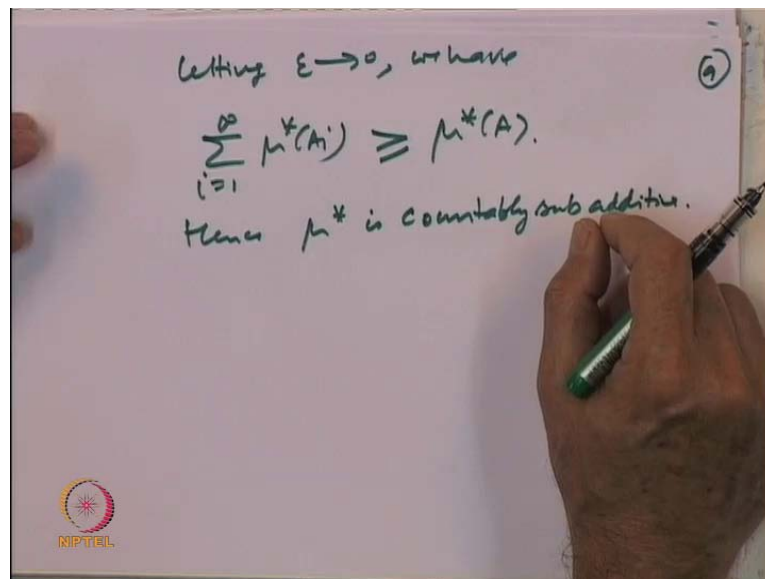 letting ε→0, we have
(9)
∞
∑ μ*(Ai) ≥ μ*(A).
i=1
Hence μ* is countably sub additive.
NPTEL